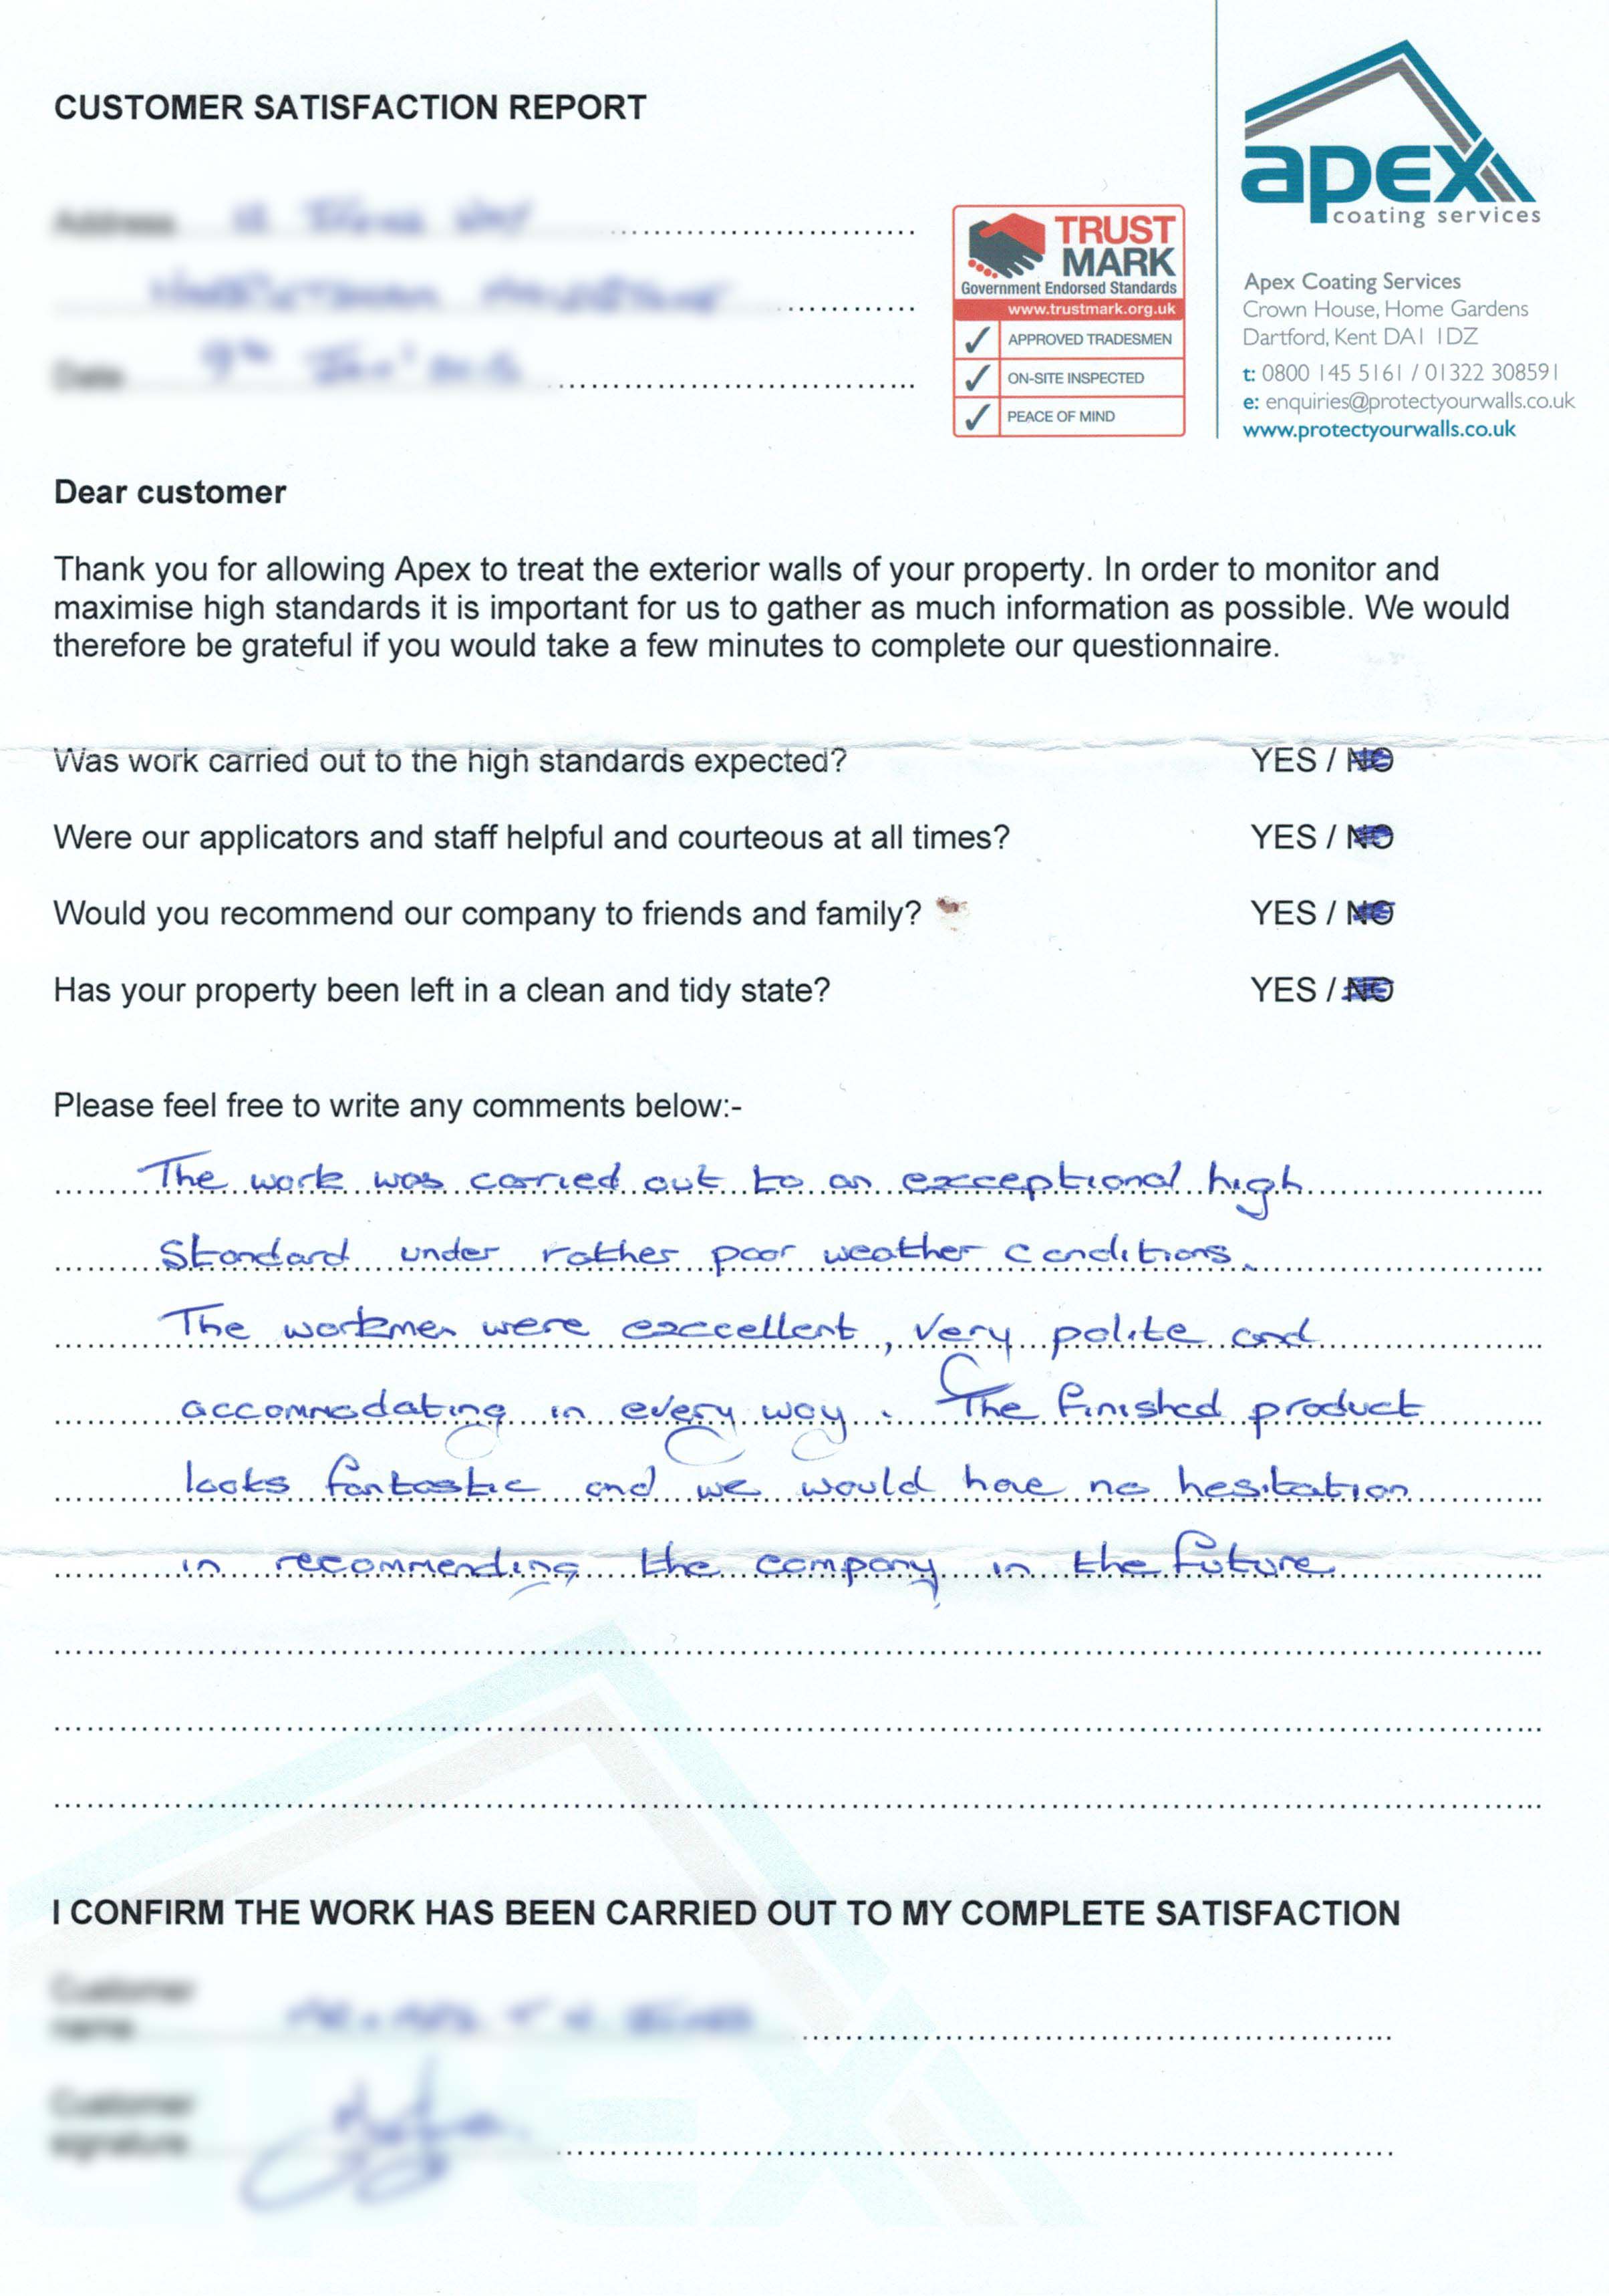 CUSTOMER SATISFACTION REPORT
apex
coating services
TRUST
MARK
Government Endorsed Standards
www.trustmark.org.uk
APPROVED TRADESMEN
ON-SITE INSPECTED
PEACE OF MIND
Apex Coating Services
Crown House, Home Gardens
Dartford, Kent DA1 1DZ
t: 0800 145 5161 / 01322 308591
e: enquiries@protectyourwalls.co.uk
www.protectyourwalls.co.uk
Address
Date
Dear customer
Thank you for allowing Apex to treat the exterior walls of your property. In order to monitor and
maximise high standards it is important for us to gather as much information as possible. We would
therefore be grateful if you would take a few minutes to complete our questionnaire.
Was work carried out to the high standards expected? YES / NO
Were our applicators and staff helpful and courteous at all times? YES / NO
Would you recommend our company to friends and family? YES / NO
Has your property been left in a clean and tidy state? YES / NO
Please feel free to write any comments below:-
The work was carried out to an excceptional high
Standard under rather poor weather conditions.
The workmen were exccellent, very polite and
accommodating in every way. The finished product
looks fantastic and we would have no hesitation
in recommending the company in the future
I CONFIRM THE WORK HAS BEEN CARRIED OUT TO MY COMPLETE SATISFACTION
Customer
name
Customer
signature